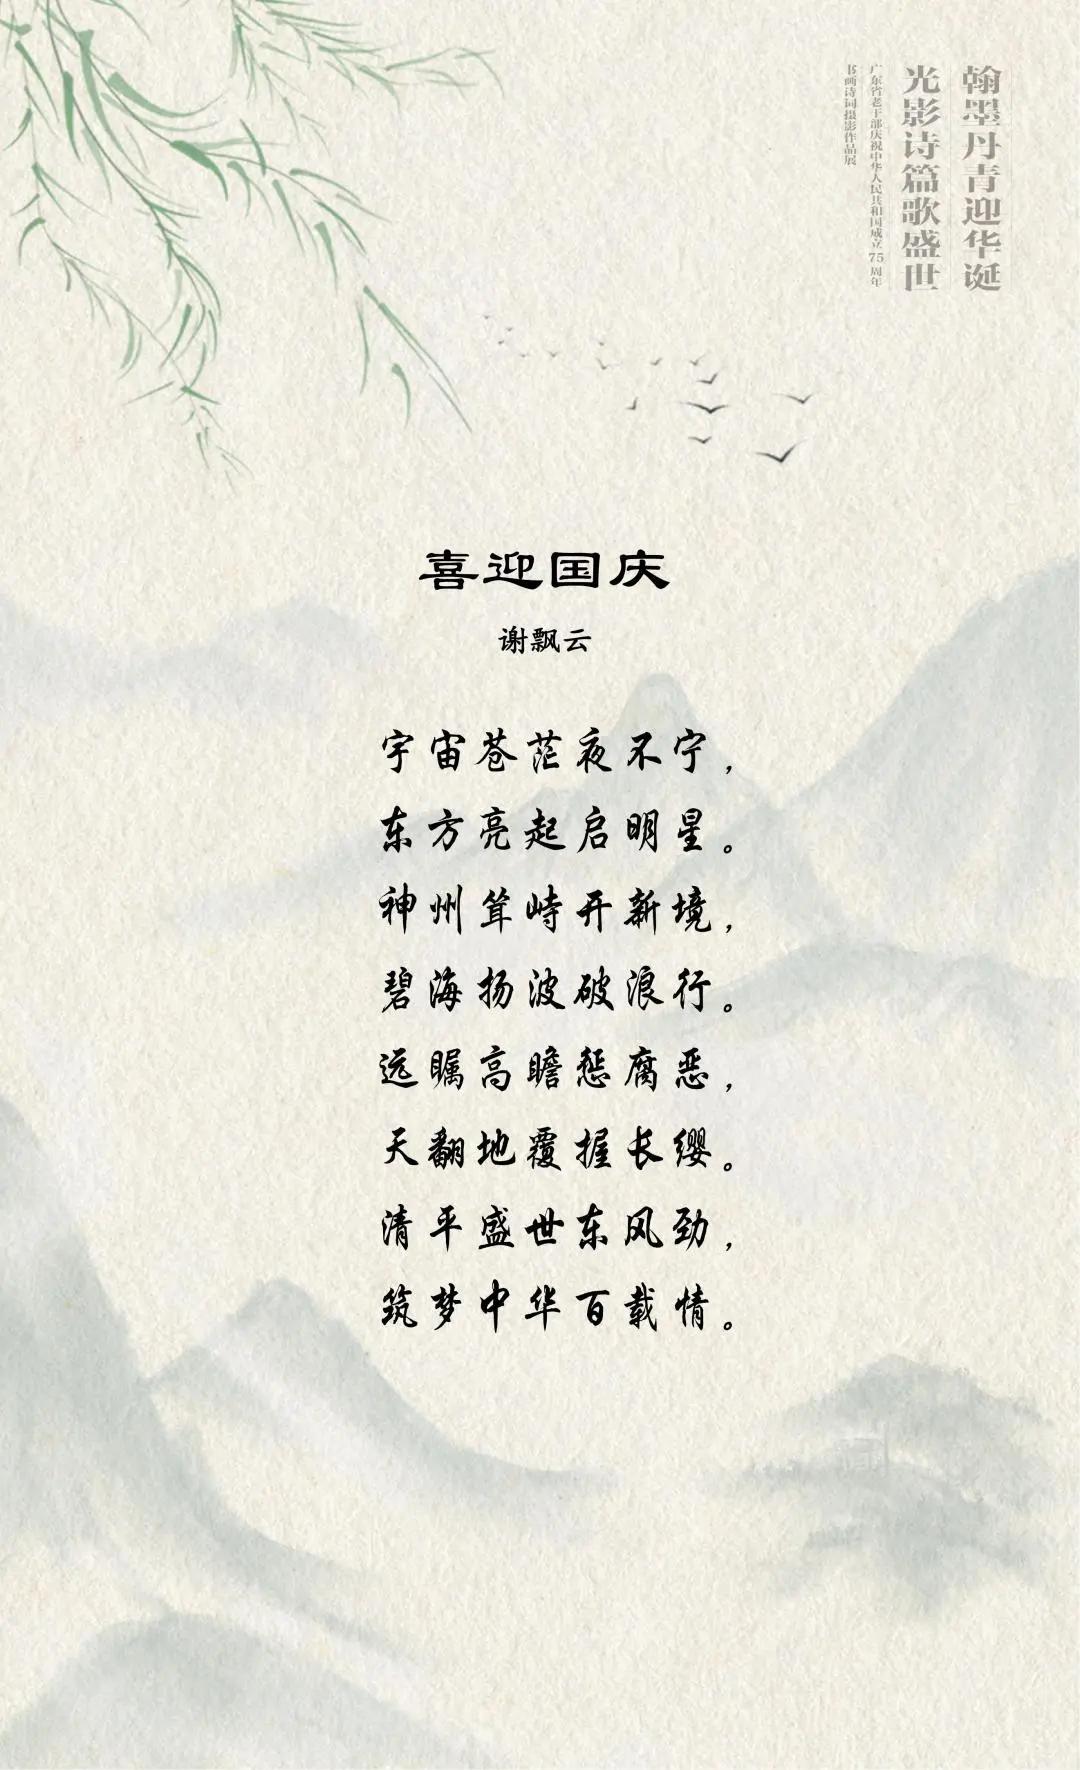 翰墨丹青迎华诞
光影诗篇歌盛世
广东省老干部庆祝中华人民共和国成立75周年
书画诗词摄影作品展
喜迎国庆
谢飘云
宇宙苍茫夜不宁，
东方亮起启明星。
神州耸峙开新境，
碧海扬波破浪行。
远瞩高瞻惩腐恶，
天翻地覆握长缨。
清平盛世东风劲，
筑梦中华百载情。